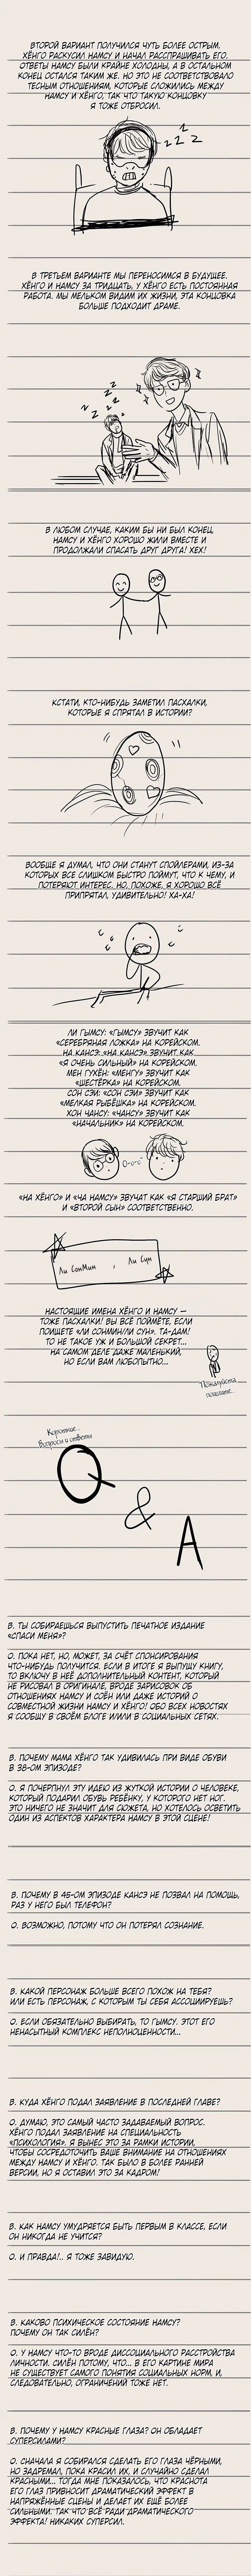 ВТОРОЙ ВАРИАНТ ПОЛУЧИЛСЯ ЧУТЬ БОЛЕЕ ОСТРЫМ.
ХЁНГО РАСКУСИЛ НАМСУ И НАЧАЛ РАССПРАШИВАТЬ ЕГО.
ОТВЕТЫ НАМСУ БЫЛИ КРАЙНЕ ХОЛОДНЫ, А В ОСТАЛЬНОМ
КОНЕЦ ОСТАЛСЯ ТАКИМ ЖЕ. НО ЭТО НЕ СООТВЕТСТВОВАЛО
ТЕСНЫМ ОТНОШЕНИЯМ, КОТОРЫЕ СЛОЖИЛИСЬ МЕЖДУ
НАМСУ И ХЁНГО, ТАК ЧТО ТАКУЮ КОНЦОВКУ
Я ТОЖЕ ОТБРОСИЛ.
z z z
В ТРЕТЬЕМ ВАРИАНТЕ МЫ ПЕРЕНОСИМСЯ В БУДУЩЕЕ.
ХЁНГО И НАМСУ ЗА ТРИДЦАТЬ, У ХЁНГО ЕСТЬ ПОСТОЯННАЯ
РАБОТА. МЫ МЕЛЬКОМ ВИДИМ ИХ ЖИЗНИ, ЭТА КОНЦОВКА
БОЛЬШЕ ПОДХОДИТ ДРАМЕ.
В ЛЮБОМ СЛУЧАЕ, КАКИМ БЫ НИ БЫЛ КОНЕЦ,
НАМСУ И ХЁНГО ХОРОШО ЖИЛИ ВМЕСТЕ И
ПРОДОЛЖАЛИ СПАСАТЬ ДРУГ ДРУГА! ХЕХ!
КСТАТИ, КТО-НИБУДЬ ЗАМЕТИЛ ПАСХАЛКИ,
КОТОРЫЕ Я СПРЯТАЛ В ИСТОРИИ?
ВООБЩЕ Я ДУМАЛ, ЧТО ОНИ СТАНУТ СПОЙЛЕРАМИ, ИЗ-ЗА
КОТОРЫХ ВСЕ СЛИШКОМ БЫСТРО ПОЙМУТ, ЧТО К ЧЕМУ, И
ПОТЕРЯЮТ ИНТЕРЕС. НО, ПОХОЖЕ, Я ХОРОШО ВСЁ
ПРИПРЯТАЛ, УДИВИТЕЛЬНО! ХА-ХА!
ЛИ ГЫМСУ: «ГЫМСУ» ЗВУЧИТ КАК
«СЕРЕБРЯНАЯ ЛОЖКА» НА КОРЕЙСКОМ.
НА КАНСЭ: «НА КАНСЭ» ЗВУЧИТ КАК
«Я ОЧЕНЬ СИЛЬНЫЙ» НА КОРЕЙСКОМ.
МЕН ГУХЁН: «МЕНГУ» ЗВУЧИТ КАК
«ШЕСТЁРКА» НА КОРЕЙСКОМ.
СОН СЭИ: «СОН СЭИ» ЗВУЧИТ КАК
«МЕЛКАЯ РЫБЁШКА» НА КОРЕЙСКОМ.
ХОН ЧАНСУ: «ЧАНСУ» ЗВУЧИТ КАК
«НАЧАЛЬНИК» НА КОРЕЙСКОМ.
«НА ХЁНГО» И «ЧА НАМСУ» ЗВУЧАТ КАК «Я СТАРШИЙ БРАТ»
И «ВТОРОЙ СЫН» СООТВЕТСТВЕННО.
Ли СонМин , Ли Сун
НАСТОЯЩИЕ ИМЕНА ХЁНГО И НАМСУ —
ТОЖЕ ПАСХАЛКИ! ВЫ ВСЁ ПОЙМЁТЕ, ЕСЛИ
ПОИЩЕТЕ «ЛИ СОНМИН/ЛИ СУН». ТА-ДАМ!
ТО НЕ ТАКОЕ УЖ И БОЛЬШОЙ СЕКРЕТ...
НА САМОМ ДЕЛЕ ДАЖЕ МАЛЕНЬКИЙ,
НО ЕСЛИ ВАМ ЛЮБОПЫТНО...
Пожалуйста
поищите...
Короткие...
Вопросы и ответы
Q & A
В. ТЫ СОБИРАЕШЬСЯ ВЫПУСТИТЬ ПЕЧАТНОЕ ИЗДАНИЕ
«СПАСИ МЕНЯ»?
О. ПОКА НЕТ, НО, МОЖЕТ, ЗА СЧЁТ СПОНСИРОВАНИЯ
ЧТО-НИБУДЬ ПОЛУЧИТСЯ. ЕСЛИ В ИТОГЕ Я ВЫПУЩУ КНИГУ,
ТО ВКЛЮЧУ В НЕЁ ДОПОЛНИТЕЛЬНЫЙ КОНТЕНТ, КОТОРЫЙ
НЕ РИСОВАЛ В ОРИГИНАЛЕ, ВРОДЕ ЗАРИСОВОК ОБ
ОТНОШЕНИЯХ НАМСУ И СОЁН ИЛИ ДАЖЕ ИСТОРИЙ О
СОВМЕСТНОЙ ЖИЗНИ НАМСУ И ХЁНГО! ОБО ВСЕХ НОВОСТЯХ
Я СООБЩУ В СВОЁМ БЛОГЕ И/ИЛИ В СОЦИАЛЬНЫХ СЕТЯХ.
В. ПОЧЕМУ МАМА ХЁНГО ТАК УДИВИЛАСЬ ПРИ ВИДЕ ОБУВИ
В 38-ОМ ЭПИЗОДЕ?
О. Я ПОЧЕРПНУЛ ЭТУ ИДЕЮ ИЗ ЖУТКОЙ ИСТОРИИ О ЧЕЛОВЕКЕ,
КОТОРЫЙ ПОДАРИЛ ОБУВЬ РЕБЁНКУ, У КОТОРОГО НЕТ НОГ.
ЭТО НИЧЕГО НЕ ЗНАЧИТ ДЛЯ СЮЖЕТА, НО ХОТЕЛОСЬ ОСВЕТИТЬ
ОДИН ИЗ АСПЕКТОВ ХАРАКТЕРА НАМСУ В ЭТОЙ СЦЕНЕ!
В. ПОЧЕМУ В 46-ОМ ЭПИЗОДЕ КАНСЭ НЕ ПОЗВАЛ НА ПОМОЩЬ,
РАЗ У НЕГО БЫЛ ТЕЛЕФОН?
О. ВОЗМОЖНО, ПОТОМУ ЧТО ОН ПОТЕРЯЛ СОЗНАНИЕ.
В. КАКОЙ ПЕРСОНАЖ БОЛЬШЕ ВСЕГО ПОХОЖ НА ТЕБЯ?
ИЛИ ЕСТЬ ПЕРСОНАЖ, С КОТОРЫМ ТЫ СЕБЯ АССОЦИИРУЕШЬ?
О. ЕСЛИ ОБЯЗАТЕЛЬНО ВЫБИРАТЬ, ТО ГЫМСУ. ЭТОТ ЕГО
НЕНАСЫТНЫЙ КОМПЛЕКС НЕПОЛНОЦЕННОСТИ...
В. КУДА ХЁНГО ПОДАЛ ЗАЯВЛЕНИЕ В ПОСЛЕДНЕЙ ГЛАВЕ?
О. ДУМАЮ, ЭТО САМЫЙ ЧАСТО ЗАДАВАЕМЫЙ ВОПРОС.
ХЁНГО ПОДАЛ ЗАЯВЛЕНИЕ НА СПЕЦИАЛЬНОСТЬ
«ПСИХОЛОГИЯ». Я ВЫНЕС ЭТО ЗА РАМКИ ИСТОРИИ,
ЧТОБЫ СОСРЕДОТОЧИТЬ ВАШЕ ВНИМАНИЕ НА ОТНОШЕНИЯХ
МЕЖДУ НАМСУ И ХЁНГО. ТАК БЫЛО В БОЛЕЕ РАННЕЙ
ВЕРСИИ, НО Я ОСТАВИЛ ЭТО ЗА КАДРОМ!
В. КАК НАМСУ УМУДРЯЕТСЯ БЫТЬ ПЕРВЫМ В КЛАССЕ, ЕСЛИ
ОН НИКОГДА НЕ УЧИТСЯ?
О. И ПРАВДА!.. Я ТОЖЕ ЗАВИДУЮ.
В. КАКОВО ПСИХИЧЕСКОЕ СОСТОЯНИЕ НАМСУ?
ПОЧЕМУ ОН ТАК СИЛЁН?
О. У НАМСУ ЧТО-ТО ВРОДЕ ДИССОЦИАЛЬНОГО РАССТРОЙСТВА
ЛИЧНОСТИ. СИЛЁН ПОТОМУ, ЧТО... В ЕГО КАРТИНЕ МИРА
НЕ СУЩЕСТВУЕТ САМОГО ПОНЯТИЯ СОЦИАЛЬНЫХ НОРМ, И,
СЛЕДОВАТЕЛЬНО, ОГРАНИЧЕНИЙ ТОЖЕ НЕТ.
В. ПОЧЕМУ У НАМСУ КРАСНЫЕ ГЛАЗА? ОН ОБЛАДАЕТ
СУПЕРСИЛАМИ?
О. СНАЧАЛА Я СОБИРАЛСЯ СДЕЛАТЬ ЕГО ГЛАЗА ЧЁРНЫМИ,
НО ЗАДРЕМАЛ, ПОКА КРАСИЛ ИХ, И СЛУЧАЙНО СДЕЛАЛ
КРАСНЫМИ... ТОГДА МНЕ ПОКАЗАЛОСЬ, ЧТО КРАСНОТА
ЕГО ГЛАЗ ПРИВНОСИТ ДРАМАТИЧЕСКИЙ ЭФФЕКТ В
НАПРЯЖЁННЫЕ СЦЕНЫ И ДЕЛАЕТ ИХ ЕЩЁ БОЛЕЕ
СИЛЬНЫМИ. ТАК ЧТО ВСЁ РАДИ ДРАМАТИЧЕСКОГО
ЭФФЕКТА! НИКАКИХ СУПЕРСИЛ.